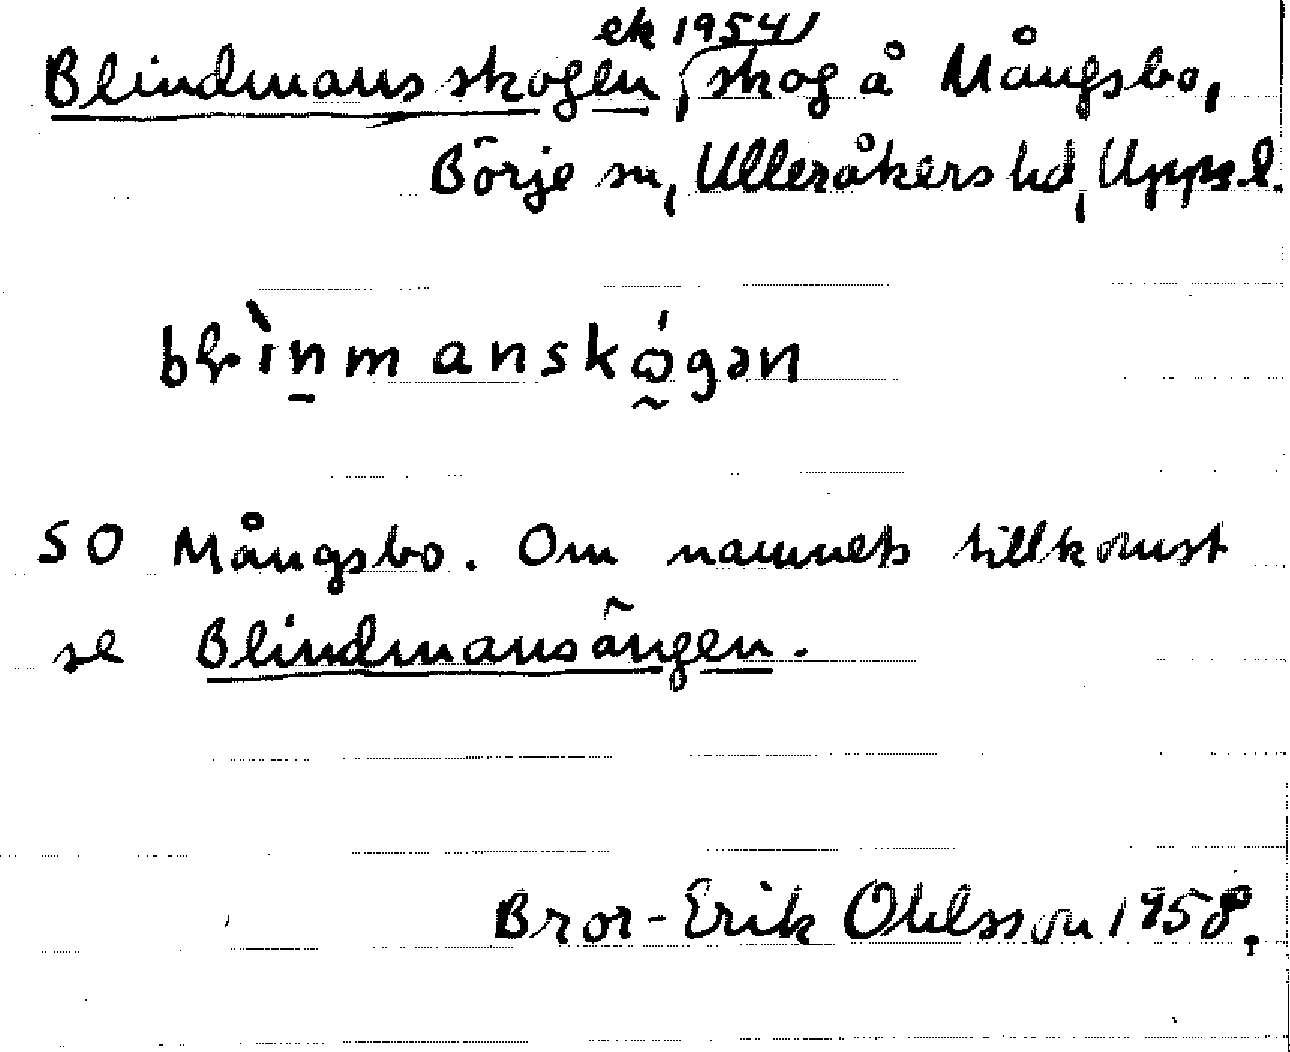 ek 1954
Blindmansskogen, skog å Mångsbo,
Börje sn, Ulleråkers hd, Uppsl.
blìn̠manskó̰gən
SO Mångsbo. Om namnets tillkomst
se Blindmansängen.
Bror-Erik Ohlsson 1958.